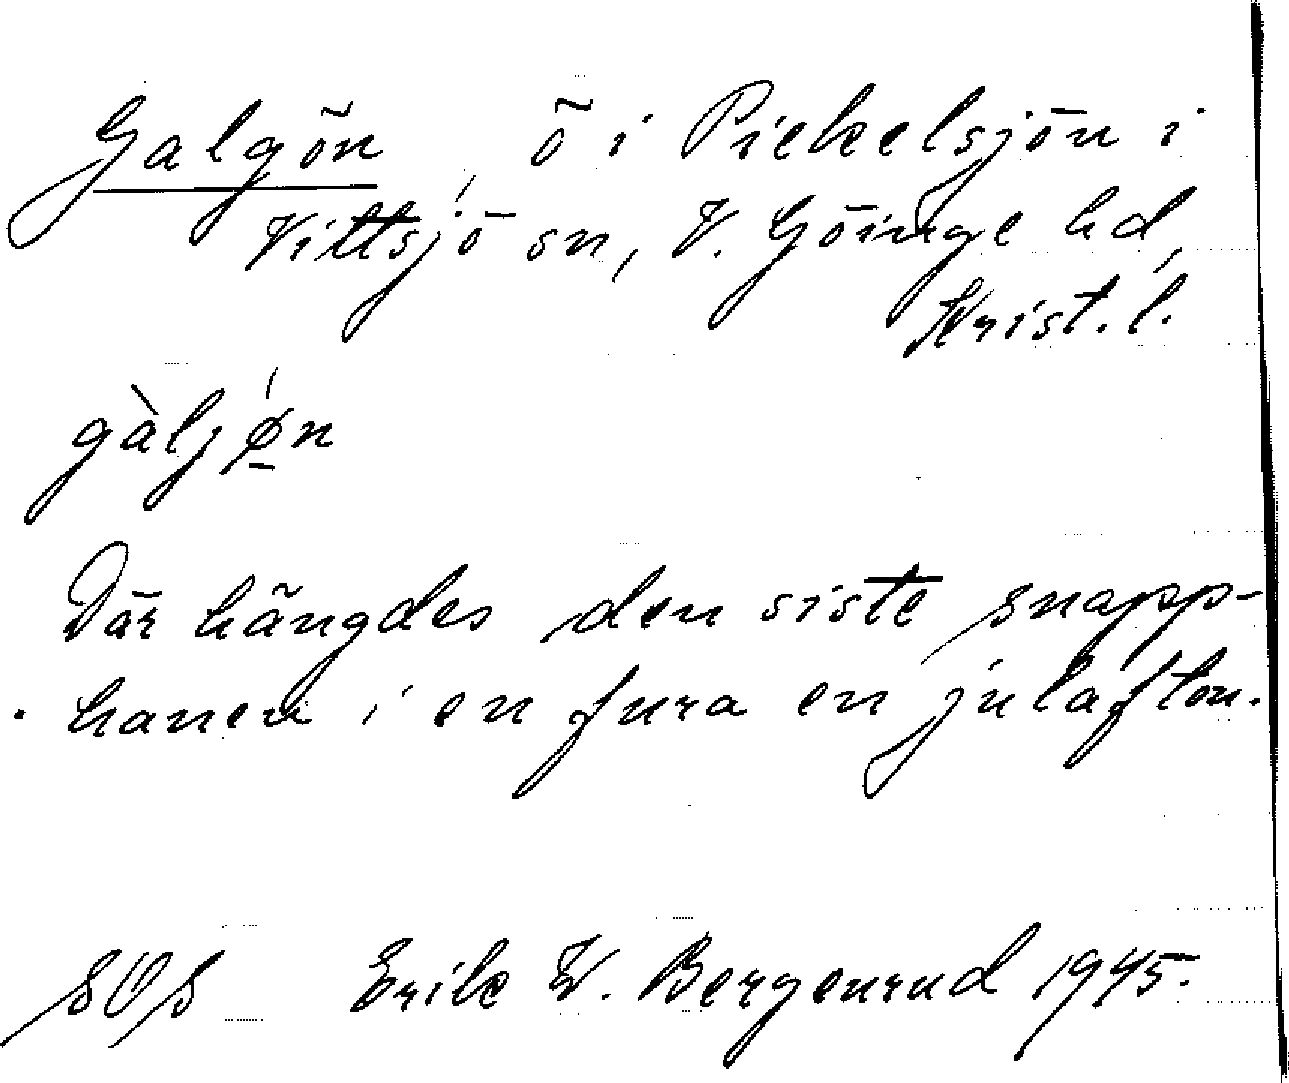 Galgön, ö i Pickelsjön i
Vittsjö sn, V. Göinge hd,
Krist. l.
gàljǿ̱n
Där hängdes den siste snapp-
hanen i en fura en julafton.
SOS Erik W. Bergenrud 1945.